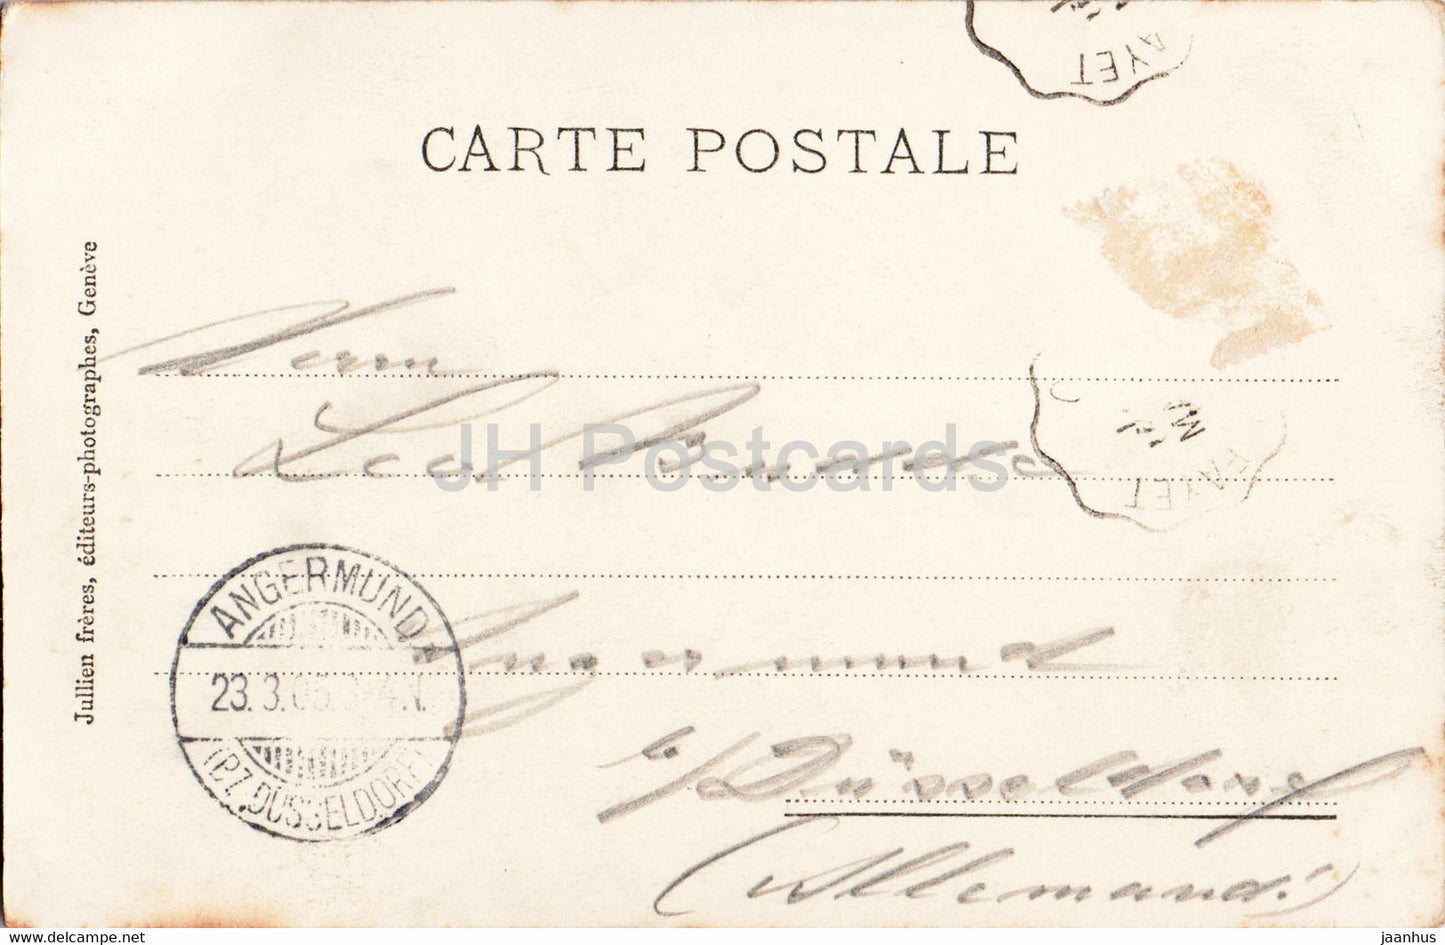 AYET
CARTE POSTALE
Jullien frères, éditeurs-photographes, Genève
Herrn
Leo
JH Postcards
FAYET
ANGERMUND
23.3.
(BZ. DÜSSELDORF)
Angermund
b/Düsseldorf
(Allemand.)
www.delcampe.net
jaanhus